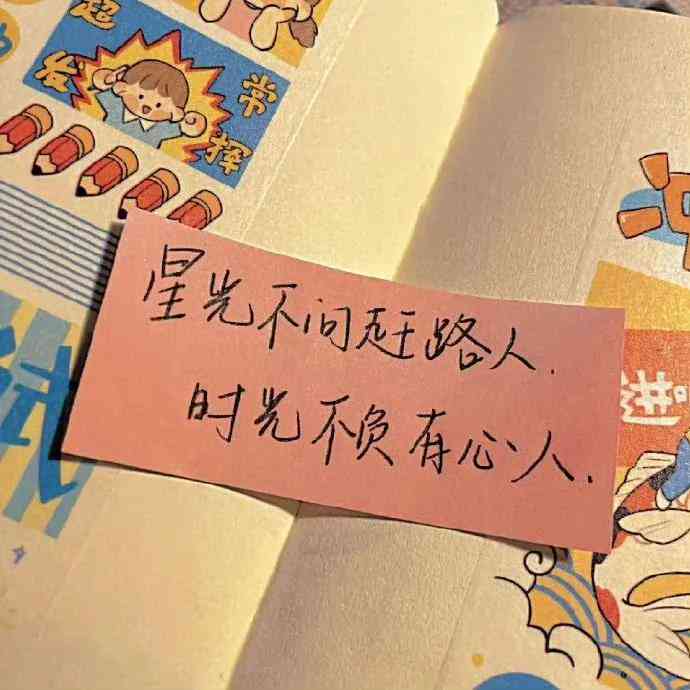 超常发挥
星光不问赶路人.
时光不负有心人.
试